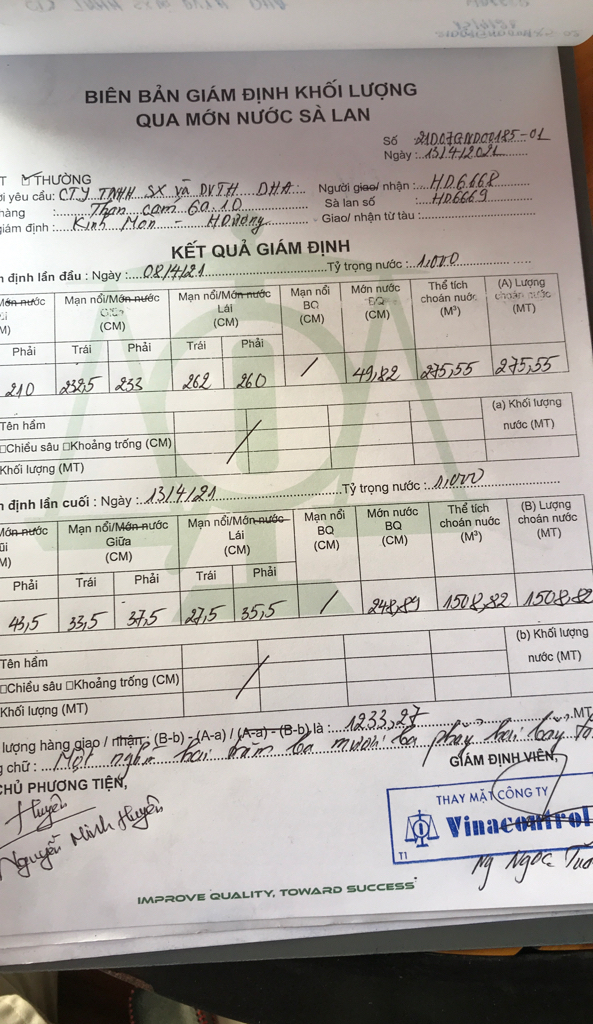 BIÊN BẢN GIÁM ĐỊNH KHỐI LƯỢNG
QUA MỚN NƯỚC SÀ LAN
Số 21D07GND00185-01
Ngày : 13/4/2021
T THƯỜNG
i yêu cầu: CTY TNHH SX và DVTH DHA Người giao/ nhận : HD6668
hàng : Than cám 6a.10 Sà lan số : HD6669
giám định : Kinh Môn - HDương Giao/ nhận từ tàu :
KẾT QUẢ GIÁM ĐỊNH
n định lần đầu : Ngày : 08/4/21 Tỷ trọng nước : 1,000
Mớn nước Mạn nổi/Mớn nước Giữa (CM) Mạn nổi/Mớn nước Lái (CM) Mạn nổi BQ (CM) Mớn nước BQ (CM) Thể tích choán nước (M³) (A) Lượng choán nước (MT)
Phải Trái Phải Trái Phải
210 232,5 233 262 260 / 49,82 275,55 275,55
Tên hầm (a) Khối lượng nước (MT)
☐Chiều sâu ☐Khoảng trống (CM)
Khối lượng (MT)
n định lần cuối : Ngày : 13/4/21 Tỷ trọng nước : 1,000
Mớn nước Mạn nổi/Mớn nước Giữa (CM) Mạn nổi/Mớn nước Lái (CM) Mạn nổi BQ (CM) Mớn nước BQ (CM) Thể tích choán nước (M³) (B) Lượng choán nước (MT)
Phải Trái Phải Trái Phải
43,5 33,5 37,5 27,5 35,5 / 248,89 1508,82 1508,82
Tên hầm (b) Khối lượng nước (MT)
☐Chiều sâu ☐Khoảng trống (CM)
Khối lượng (MT)
lượng hàng giao / nhận : (B-b) - (A-a) / (A-a) - (B-b) là : 1233,27 MT
g chữ : Một nghìn hai trăm ba mươi ba phẩy hai bảy
CHỦ PHƯƠNG TIỆN, GIÁM ĐỊNH VIÊN,
Huyên
Nguyễn Minh Huyên
THAY MẶT CÔNG TY
Vinacontrol
T1
Ng Ngọc
IMPROVE QUALITY, TOWARD SUCCESS